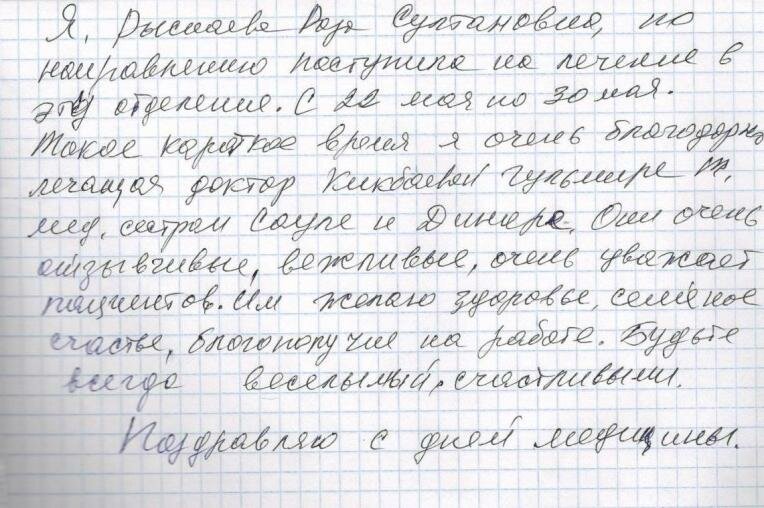 Я, Рыспаева Роза Султановна, по
направлению поступила на лечение в
эту отделение. С 22 мая по 30 мая.
Такое короткое время я очень благодорна
лечащая доктор Кикбаевой Гульмире Т.
мед. сестрам Сауле и Динаре. Они очень
отзывчивые, вежливые, очень уважает
пациентов. Им желаю здоровье, семейное
счастье, благополучие на работе. Будьте
всегда веселымый, счастливыми.
Поздравляю с дней медицины.